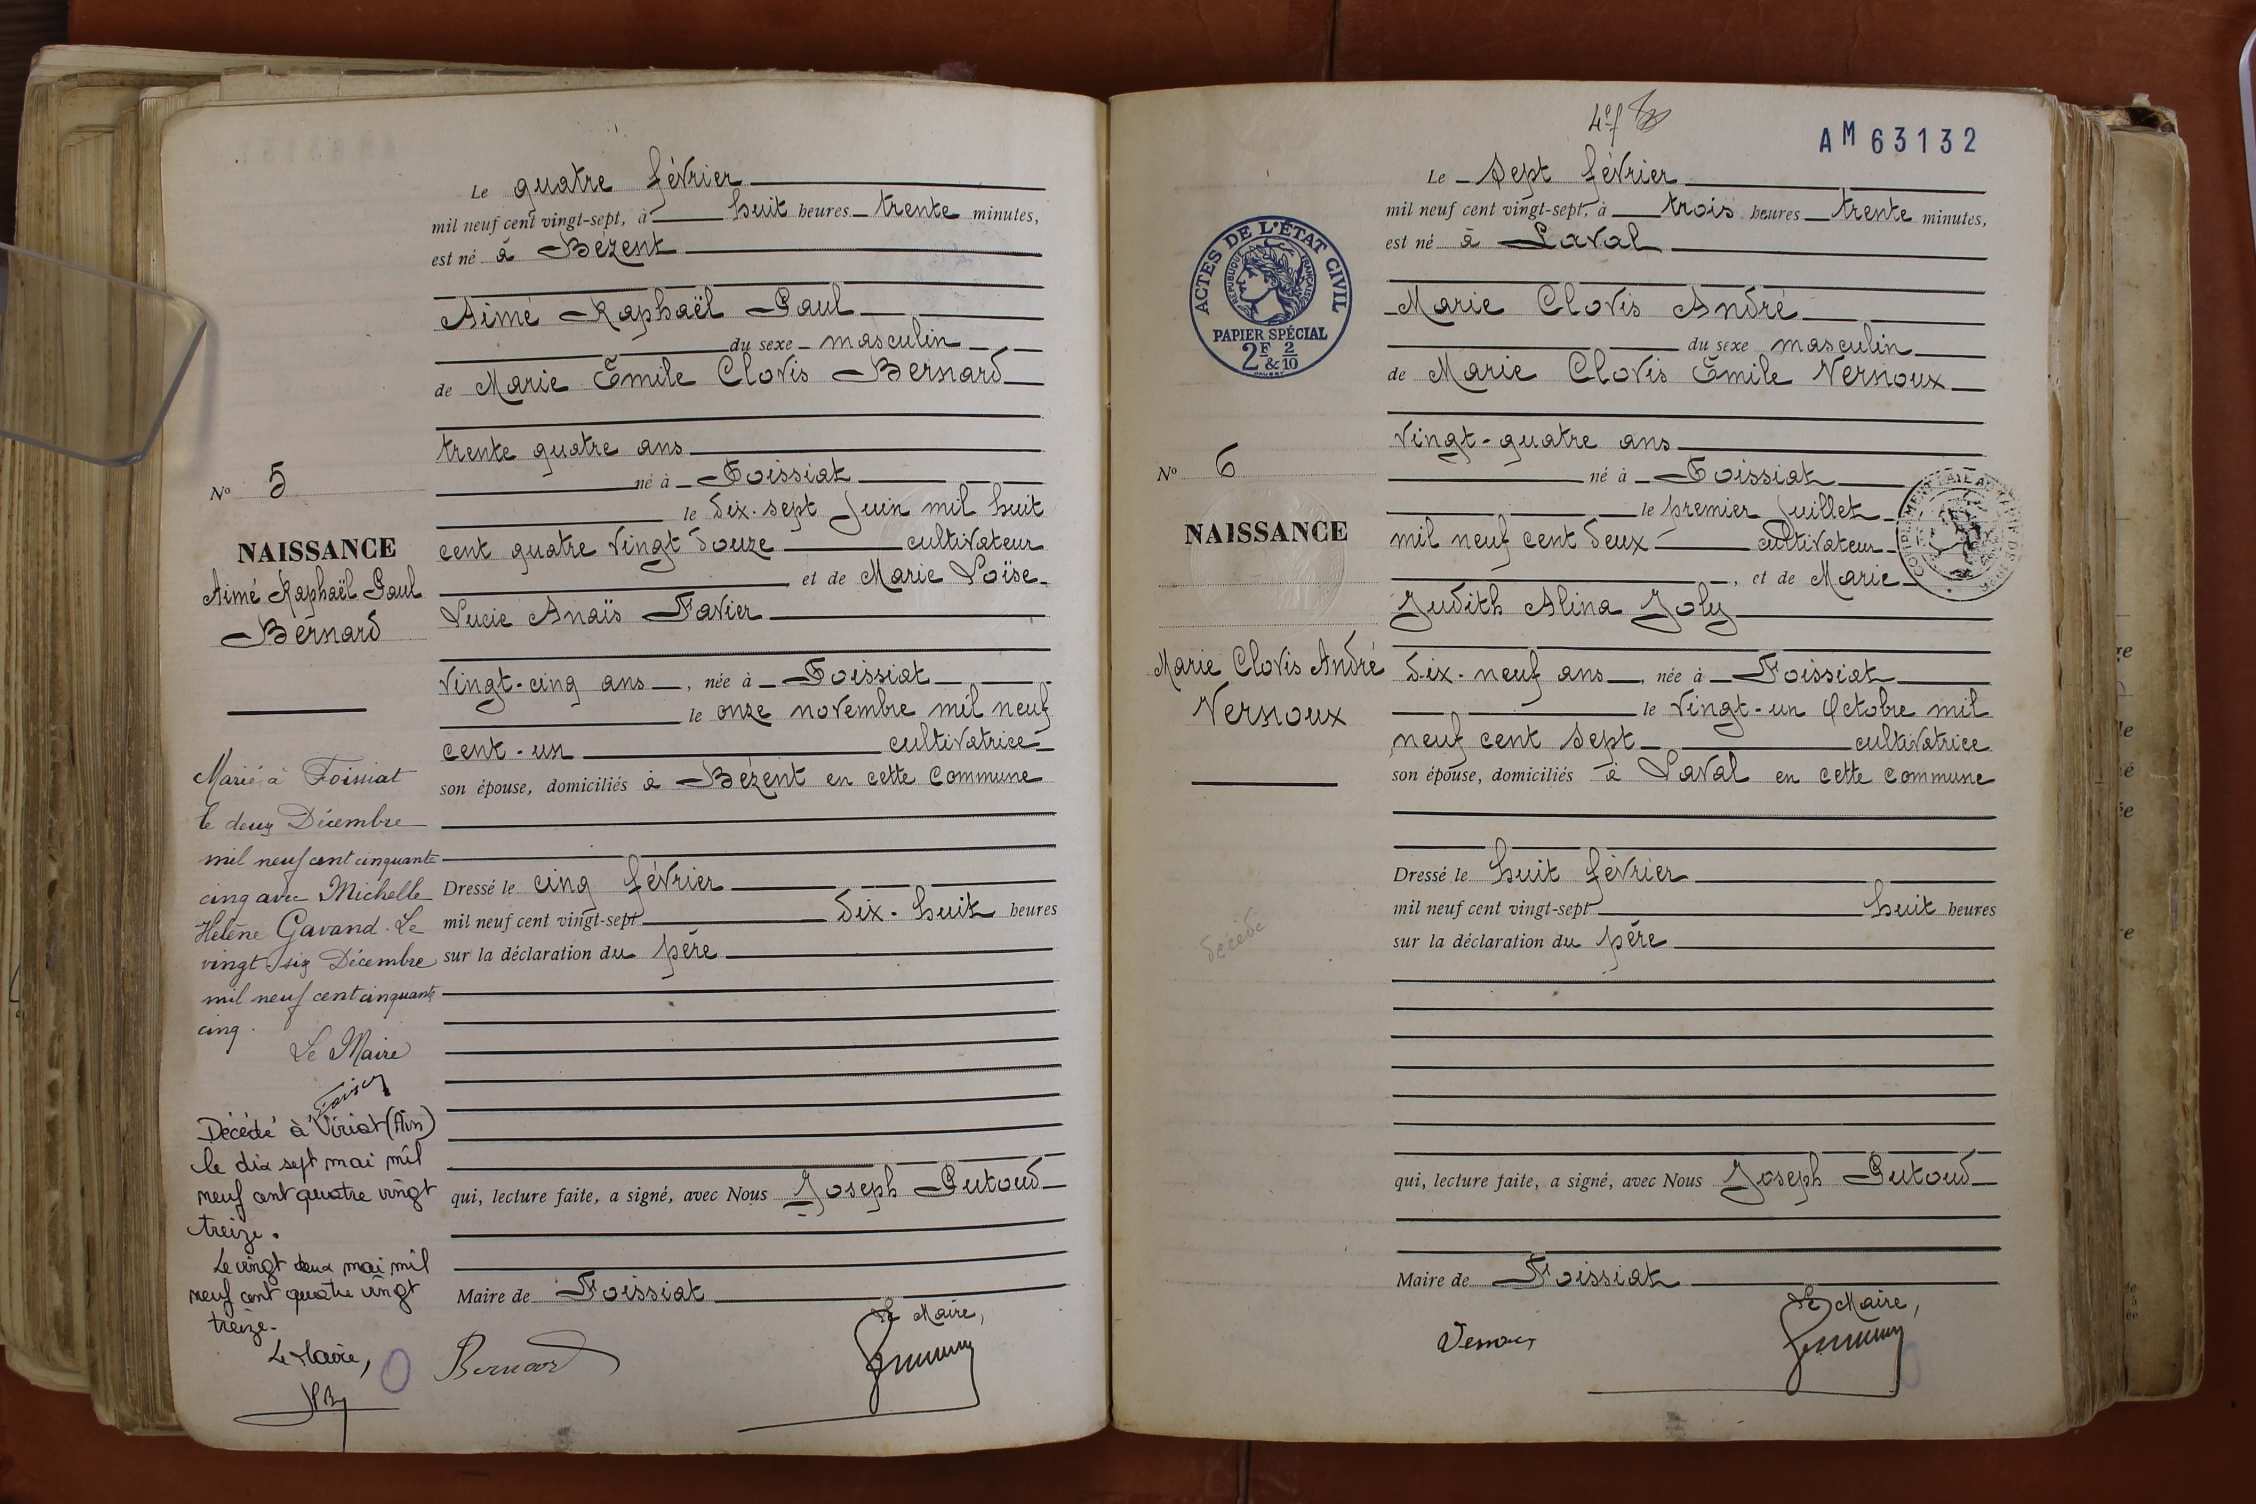 Le quatre février
mil neuf cent vingt-sept, à huit heures trente minutes,
est né à Bézent
Aimé Raphaël Paul
du sexe masculin
de Marie Émile Clovis Bernard
trente quatre ans
né à Foissiat
le dix-sept Juin mil huit
cent quatre vingt douze cultivateur
et de Marie Loïse
Lucie Anaïs Favier
vingt-cinq ans, née à Foissiat
le onze novembre mil neuf
cent-un cultivatrice
son épouse, domiciliés à Bézent en cette commune
Dressé le cinq février
mil neuf cent vingt-sept dix-huit heures
sur la déclaration du père
qui, lecture faite, a signé, avec Nous Joseph Putoud
Maire de Foissiat
Le Maire,
Bernard
No 5
NAISSANCE
Aimé Raphaël Paul
Bernard
Marié à Foissiat
le deux Décembre
mil neuf cent cinquante
cinq avec Michelle
Hélène Gavand. Le
vingt six Décembre
mil neuf cent cinquante
cinq.
Le Maire
Décédé à Viriat (Ain)
le dix sept mai mil
neuf cent quatre vingt
treize.
Le vingt deux mai mil
neuf cent quatre vingt
treize.
Le Maire,
AM 63132
Le Sept février
mil neuf cent vingt-sept, à trois heures trente minutes,
est né à Laval
Marie Clovis André
du sexe masculin
de Marie Clovis Émile Vernoux
vingt-quatre ans
né à Foissiat
le premier Juillet
mil neuf cent deux cultivateur
, et de Marie
Judith Alina Joly
dix-neuf ans, née à Foissiat
le vingt-un Octobre mil
neuf cent sept cultivatrice
son épouse, domiciliés à Laval en cette commune
Dressé le huit février
mil neuf cent vingt-sept huit heures
sur la déclaration du père
qui, lecture faite, a signé, avec Nous Joseph Putoud
Maire de Foissiat
Le Maire,
Vernoux
ACTES DE L'ÉTAT CIVIL
RÉPUBLIQUE FRANÇAISE
PAPIER SPÉCIAL
2F & 2/10
No 6
NAISSANCE
Marie Clovis André
Vernoux
décédé